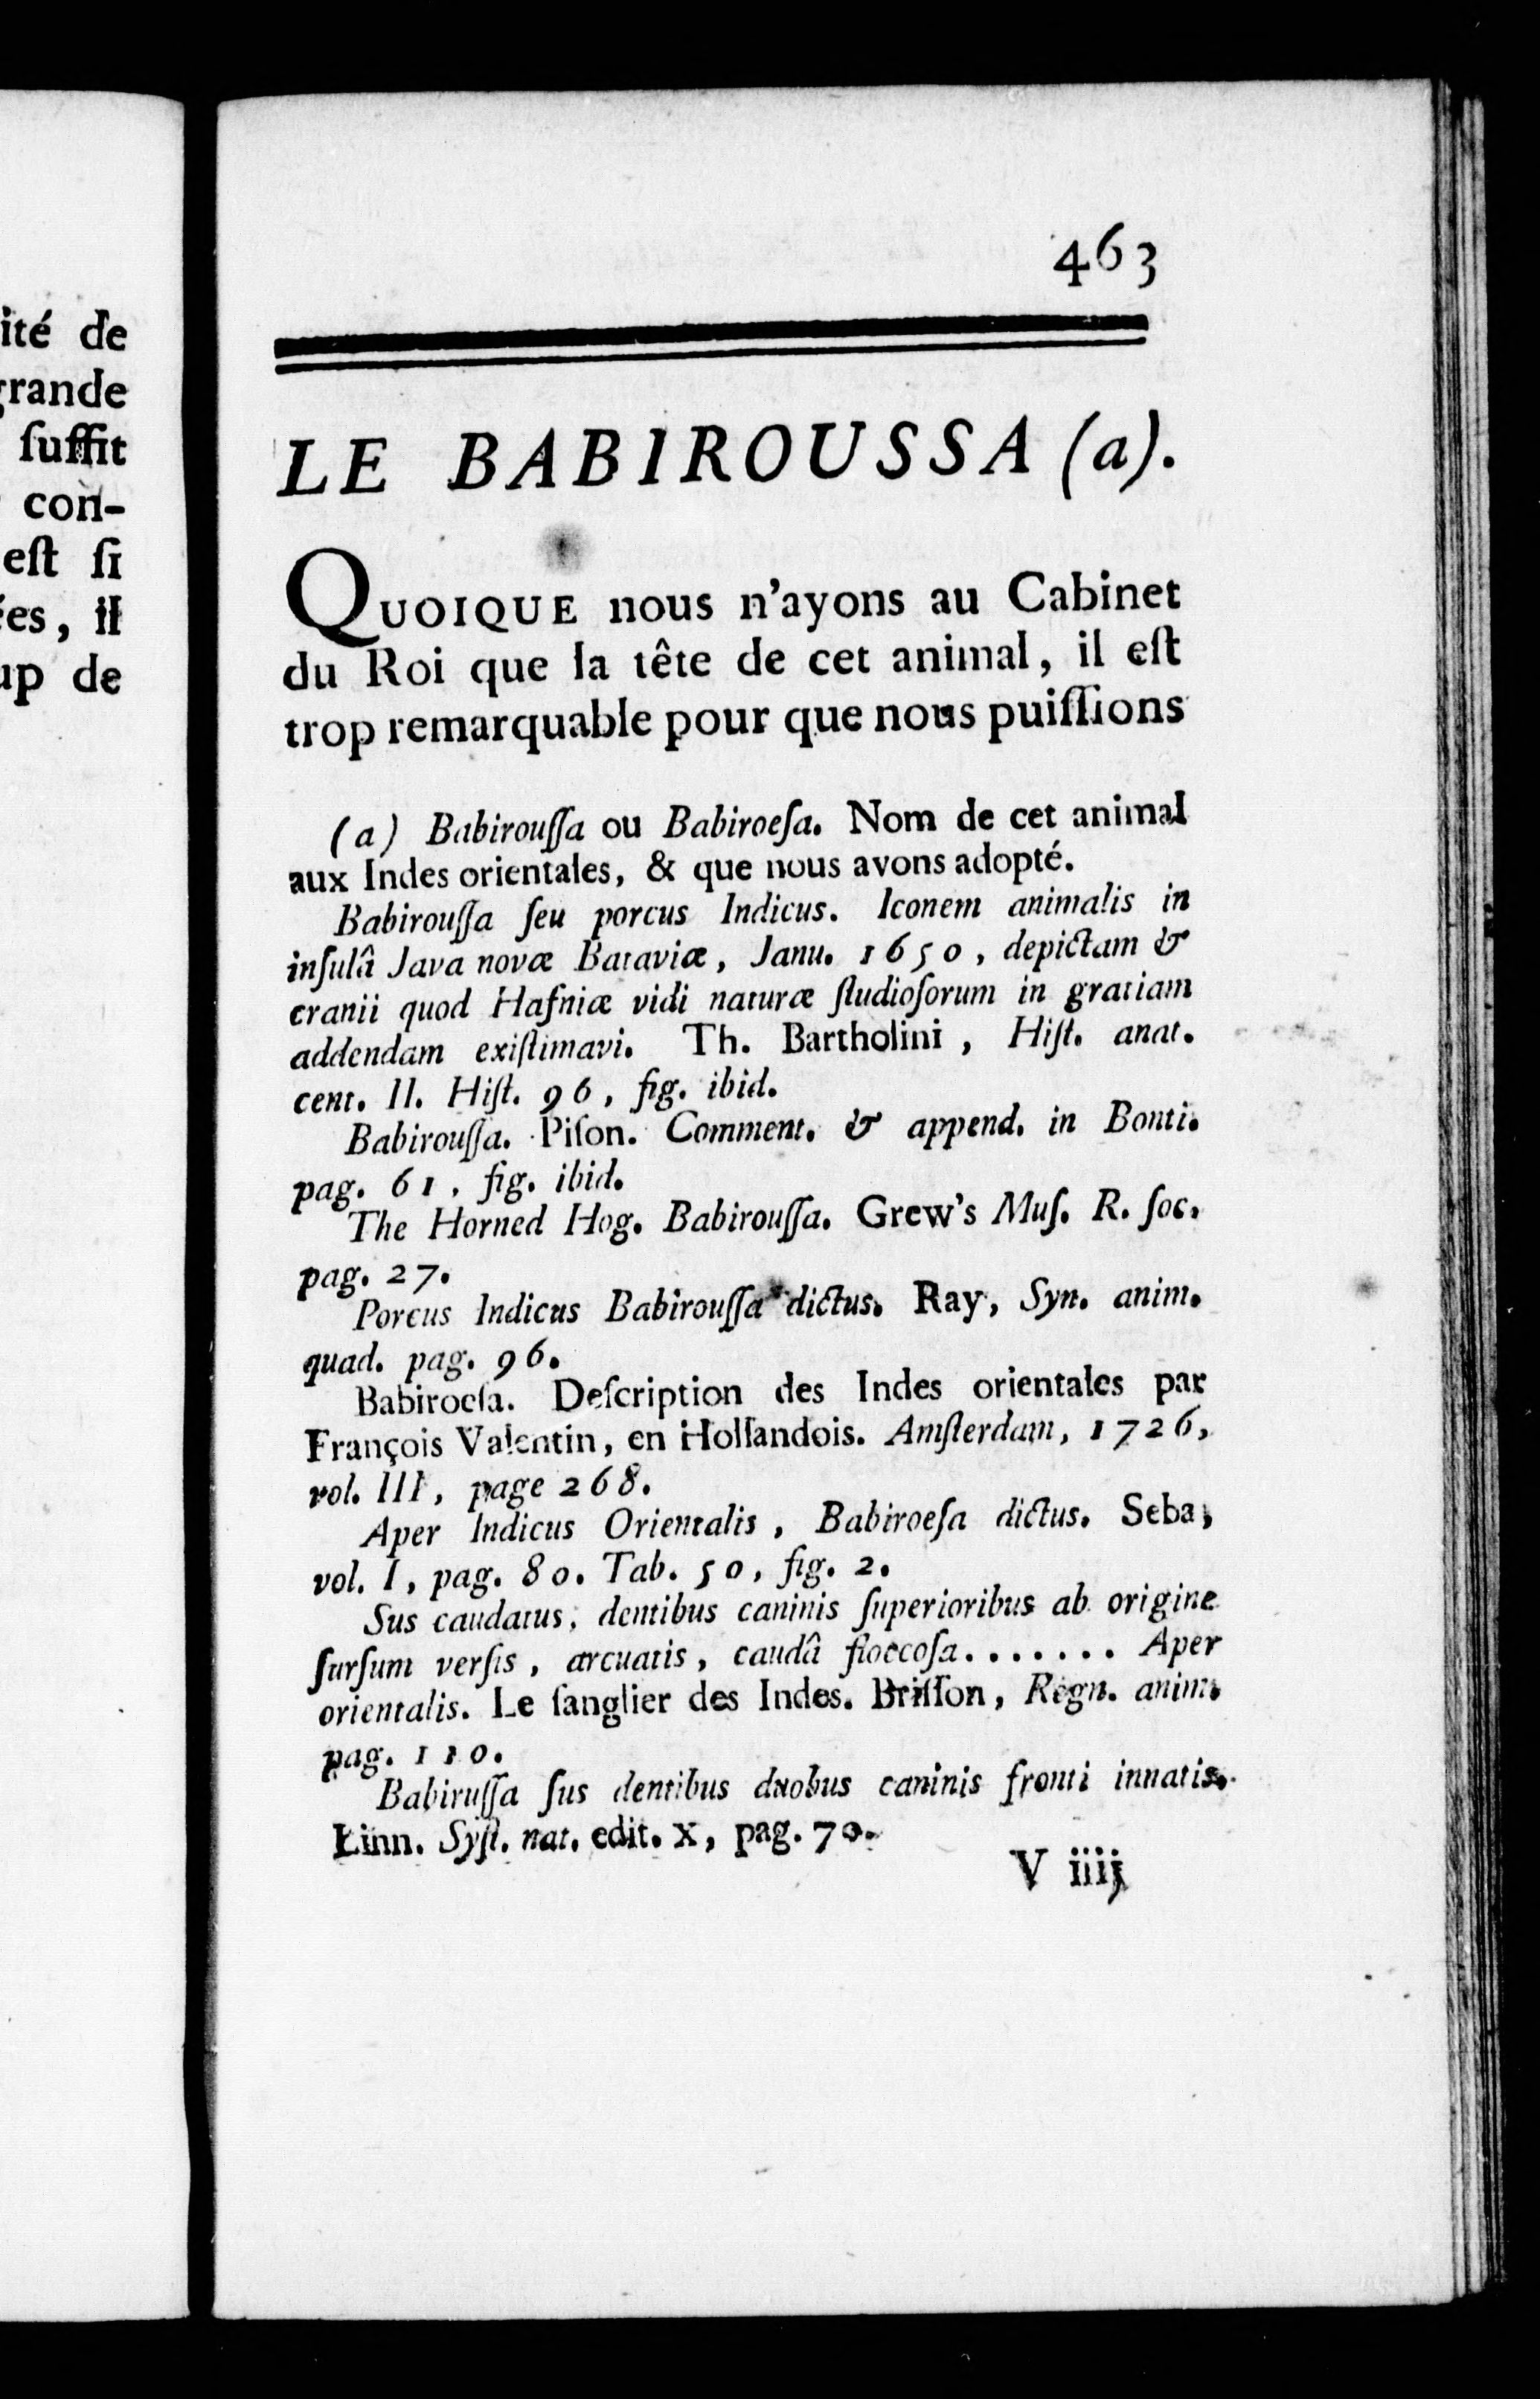 ité de
grande
ſuffit
con-
eſt ſi
ées, il
up de
463
LE BABIROUSSA (a).
QUOIQUE nous n'ayons au Cabinet
du Roi que la tête de cet animal, il eſt
trop remarquable pour que nous puiſſions
(a) Babirouſſa ou Babiroeſa. Nom de cet animal
aux Indes orientales, & que nous avons adopté.
Babirouſſa ſeu porcus Indicus. Iconem animalis in
inſulâ Java novæ Bataviæ, Janu. 1650, depictam &
cranii quod Hafniæ vidi naturæ ſtudioſorum in gratiam
addendam exiſtimavi. Th. Bartholini, Hiſt. anat.
cent. II. Hiſt. 96, fig. ibid.
Babirouſſa. Piſon. Comment. & append. in Bonti.
pag. 61, fig. ibid.
The Horned Hog. Babirouſſa. Grew's Muſ. R. ſoc.
pag. 27.
Porcus Indicus Babirouſſa dictus. Ray, Syn. anim.
quad. pag. 96.
Babiroeſa. Deſcription des Indes orientales par
François Valentin, en Hollandois. Amſterdam, 1726,
vol. III, page 268.
Aper Indicus Orientalis, Babiroeſa dictus. Seba,
vol. I, pag. 80. Tab. 50, fig. 2.
Sus caudatus, dentibus caninis ſuperioribus ab origine
ſurſum verſis, arcuatis, caudâ floccoſa....... Aper
orientalis. Le ſanglier des Indes. Briſſon, Regn. anim.
pag. 110.
Babiruſſa ſus dentibus duobus caninis fronti innatis.
Linn. Syſt. nat. edit. X, pag. 70.
V iiij